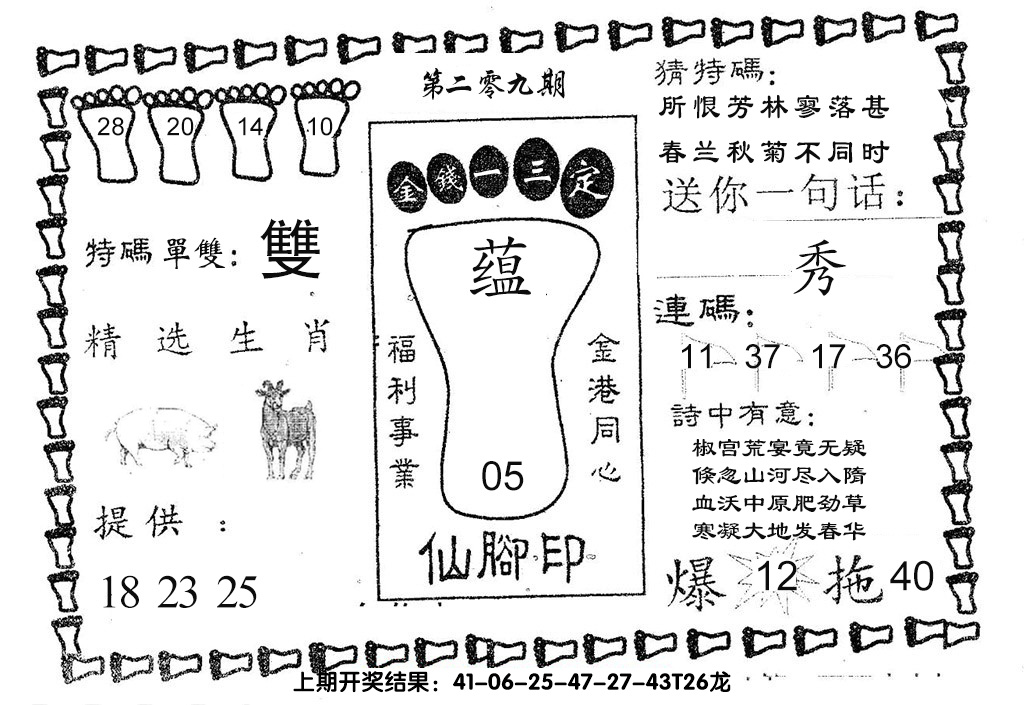 第二零九期
28 20 14 10
特碼單雙：雙
精选生肖
提供：
18 23 25
金錢一三定
蕴
福利事業
金港同心
05
仙腳印
猜特碼：
所恨芳林寥落甚
春兰秋菊不同时
送你一句话：
秀
連碼：
11 37 17 36
詩中有意：
椒宫荒宴竟无疑
倏忽山河尽入隋
血沃中原肥劲草
寒凝大地发春华
爆 12 拖 40
上期开奖结果：41-06-25-47-27-43T26龙